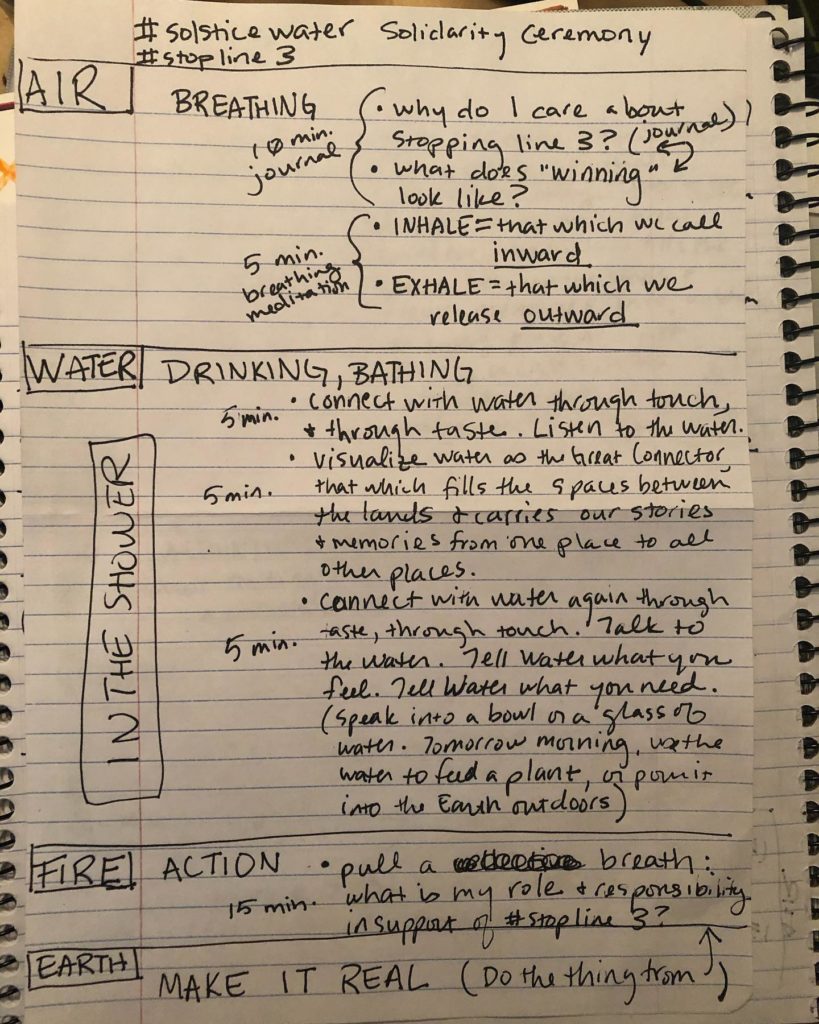 #solstice water Solidarity Ceremony
#stopline 3
AIR
BREATHING
10 min.
journal
• why do I care about
stopping line 3? (journal)
• what does "winning"
look like?
5 min.
breathing
meditation
• INHALE = that which we call
inward
• EXHALE = that which we
release outward
WATER DRINKING, BATHING
IN THE SHOWER
5 min. • connect with water through touch,
+ through taste. Listen to the water.
• visualize water as the Great Connector,
5 min. that which fills the spaces between
the lands + carries our stories
+ memories from one place to all
other places.
• connect with water again through
5 min. taste, through touch. Talk to
the water. Tell Water what you
feel. Tell Water what you need.
(speak into a bowl or a glass of
water. Tomorrow morning, use the
water to feed a plant, or pour it
into the Earth outdoors)
FIRE ACTION • pull a breath:
15 min. what is my role + responsibility
in support of #stopline 3?
EARTH MAKE IT REAL (Do the thing from ↑)